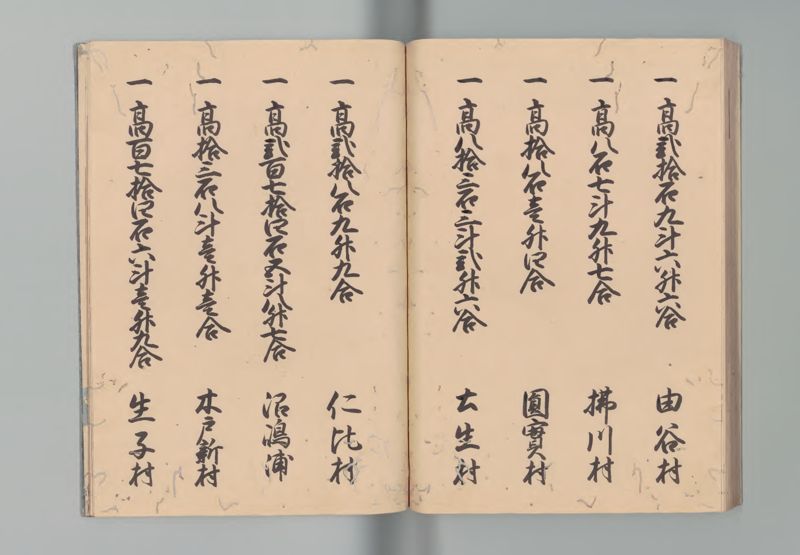 一 高弐拾石九斗六升六合 由谷村
一 高八石七斗九升七合 拂川村
一 高拾八石壱升四合 圓寳村
一 高八拾三石三斗弐升六合 土生村
一 高弐拾八石九升九合 仁比村
一 高弐百七拾四石五斗八升七合 沼嶋浦
一 高拾三石八斗壱升壱合 木戸新村
一 高百七拾四石六斗壱升九合 生子村